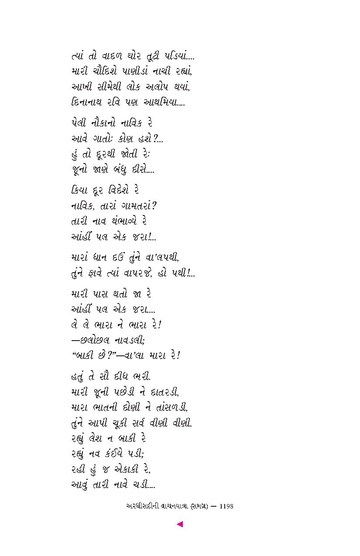 ત્યાં તો વાદળ ઘોર તૂટી પડિયાં....
મારી ચૌદિશે પાણીડાં નાચી રહ્યાં,
આખી સીમેથી લોક અલોપ થયાં,
દિનાનાથ રવિ પણ આથમિયા....
પેલી નૌકાનો નાવિક રે
આવે ગાતોઃ કોણ હશે?...
હું તો દૂરથી જોતી રેઃ
જૂનો જાણે બંધુ દીસે....
કિયા દૂર વિદેશે રે
નાવિક, તારાં ગામતરાં?
તારી નાવ થંભાવ્યે રે
આંહીં પલ એક જરા!...
મારાં ધાન દઉં તુંને વા'લપથી,
તુંને ફાવે ત્યાં વાપરજે, હો પથી!...
મારી પાસ થતો જા રે
આંહીં પલ એક જરા....
લે લે ભારા ને ભારા રે!
—છલોછલ નાવડલી;
“બાકી છે?”—વા'લા મારા રે!
હતું તે સૌ દીધ ભરી.
મારી જૂની પછેડી ને દાતરડી,
મારા ભાતની દોણી ને તાંસળડી,
તુંને આપી ચૂકી સર્વ વીણી વીણી.
રહ્યું લેશ ન બાકી રે
રહ્યું નવ કંઈયે પડી;
રહી હું જ એકાકી રે,
આવું તારી નાવે ચડી....
અરધીસદીની વાચનયાત્રા (સમગ્ર) — 1198